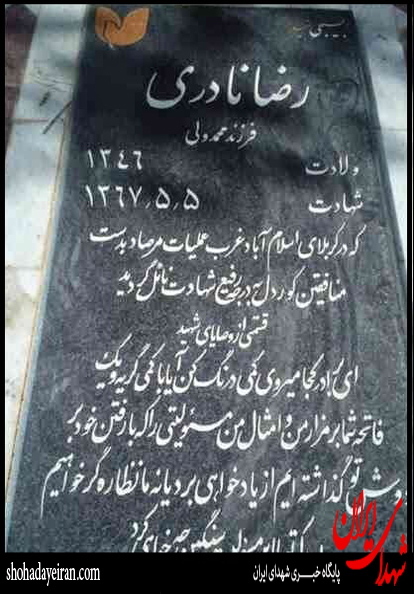 بسیجی شهید
رضا نادری
فرزند محمدولی
ولادت ۱۳۴۶
شهادت ۱۳۶۷٫۵٫۵
که در کربلای اسلام آباد غرب عملیات مرصاد بدست
منافقین کوردل به درجه رفیع شهادت نائل گردید
قسمتی از وصایای شهید
ای برادر کجا میروی کمی درنگ کن آیا با کمی گریه و یک
فاتحه شما بر مزار من و امثال من مسئولیتی را که با رفتن خود بر
دوش تو گذاشته ایم از یاد خواهی برد یا نه ما نظاره گر خواهیم
سنگین چه خواهی کرد
شهدای ایران
shohadayeiran.com
پایگاه خبری شهدای ایران